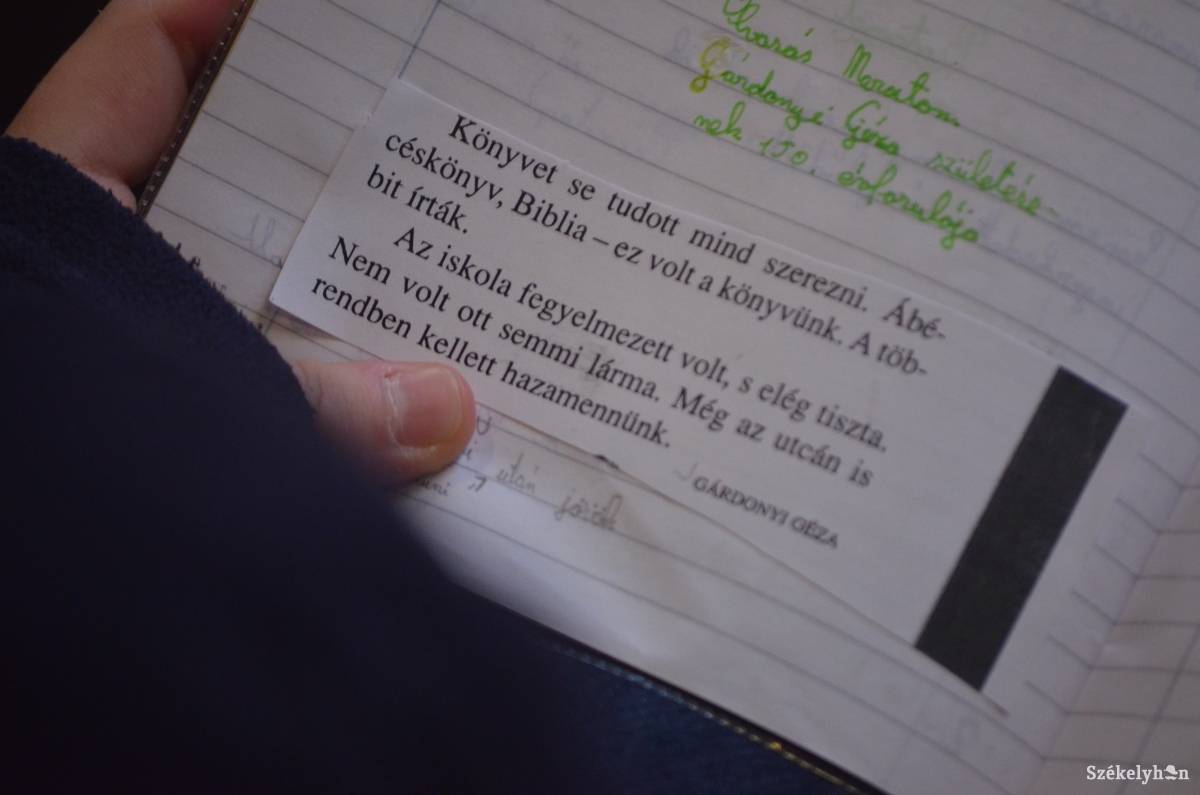 Olvasás Maraton
Gárdonyi Géza születésé-
nek 150. évfordulója
Könyvet se tudott mind szerezni. Ábé-
céskönyv, Biblia – ez volt a könyvünk. A töb-
bit írták.
Az iskola fegyelmezett volt, s elég tiszta.
Nem volt ott semmi lárma. Még az utcán is
rendben kellett hazamennünk.
GÁRDONYI GÉZA
után
Székelyhon